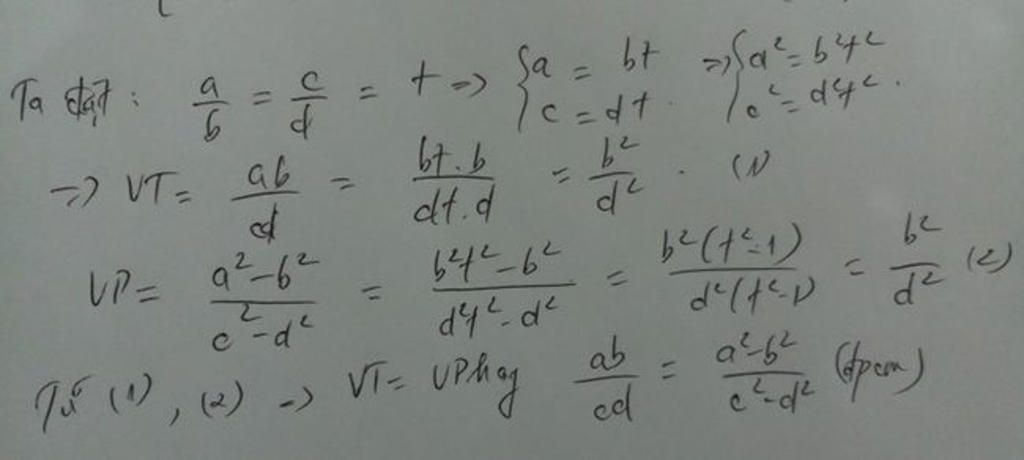 Ta đặt: a/b = c/d = t => { a = bt c = dt. => { a² = b²t² c² = d²t².
=> VT = ab/cd = bt.b/dt.d = b²/d². (1)
VP = a²-b²/c²-d² = b²t²-b²/d²t²-d² = b²(t²-1)/d²(t²-1) = b²/d² (2)
Từ (1), (2) => VT = VP hay ab/cd = a²-b²/c²-d² (đpcm)